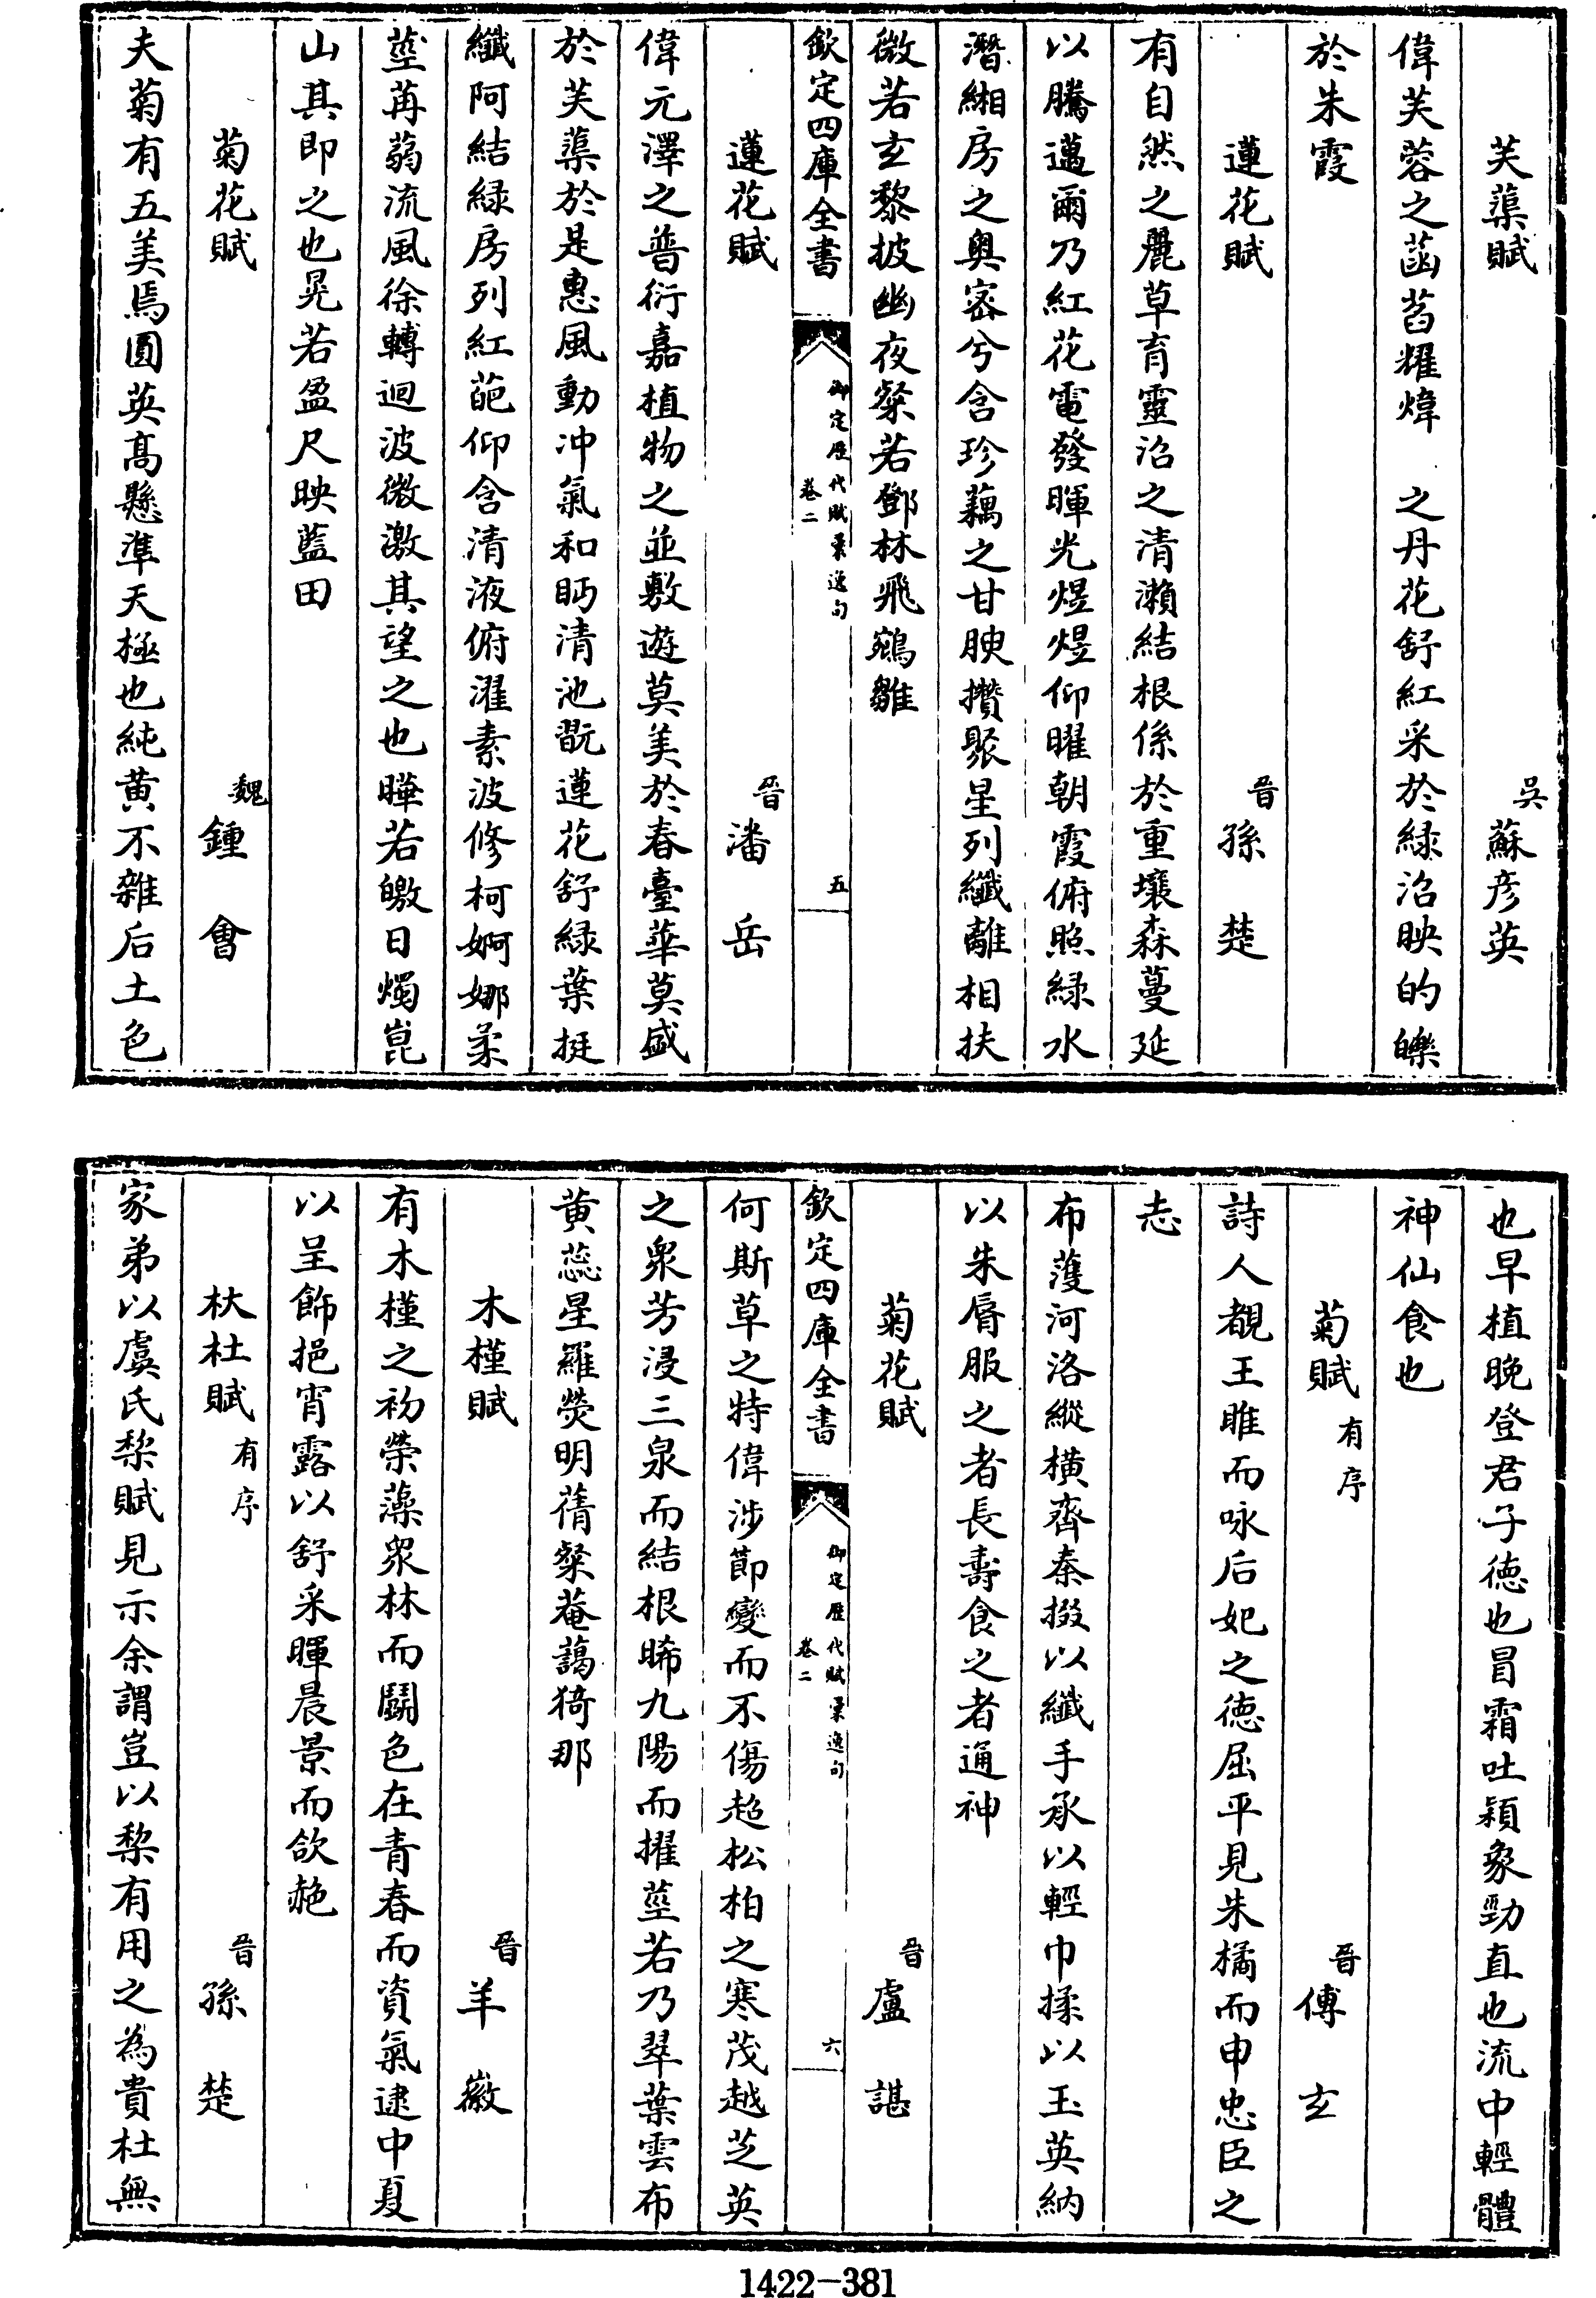 芙蕖賦　吳蘇彦英
偉芙蓉之菡萏耀煒　之丹花舒紅采於緑沼映的皪
於朱霞
蓮花賦　晉孫楚
有自然之麗草育靈沼之清瀨結根係於重壤森蔓延
以騰邁爾乃紅花電發暉光煜煜仰曜朝霞俯照緑水
潛緗房之奥密兮含珍藕之甘腴攢聚星列纖離相扶
微若玄黎披幽夜粲若鄧林飛鵷雛
欽定四庫全書　御定歴代賦彚逸句　卷二　五
蓮花賦　晉潘岳
偉元澤之普衍嘉植物之並敷遊莫美於春臺華莫盛
於芙蕖於是惠風動冲氣和眄清池翫蓮花舒緑葉挺
纖阿結緑房列紅葩仰含清液俯濯素波修柯婀娜柔
莖苒蒻流風徐轉迴波微激其望之也曄若皦日燭崑
山其即之也晃若盈尺映藍田
菊花賦　魏鍾會
夫菊有五美焉圓英髙懸凖天極也純黄不雜后土色
也早植晚登君子徳也冒霜吐穎象勁直也流中輕體
神仙食也
菊賦有序　晉傅玄
詩人覩王雎而咏后妃之徳屈平見朱橘而申忠臣之
志
布蓶河洛縱橫齊秦掇以纖手承以輕巾揉以玉英納
以朱脣服之者長壽食之者通神
菊花賦　晉盧諶
欽定四庫全書　御定歴代賦彚逸句　卷二　六
何斯草之特偉涉節變而不傷超松柏之寒茂越芝英
之衆芳浸三泉而結根晞九陽而擢莖若乃翠葉雲布
黄蕊星羅熒明蒨粲菴藹猗那
木槿賦　晉羊徽
有木槿之初榮藻衆林而鬭色在青春而資氣逮中夏
以呈飾挹宵露以舒采暉晨景而欿赩
杕杜賦有序　晉孫楚
家弟以虞氏棃賦見示余謂豈以棃有用之為貴杜無
1422-381